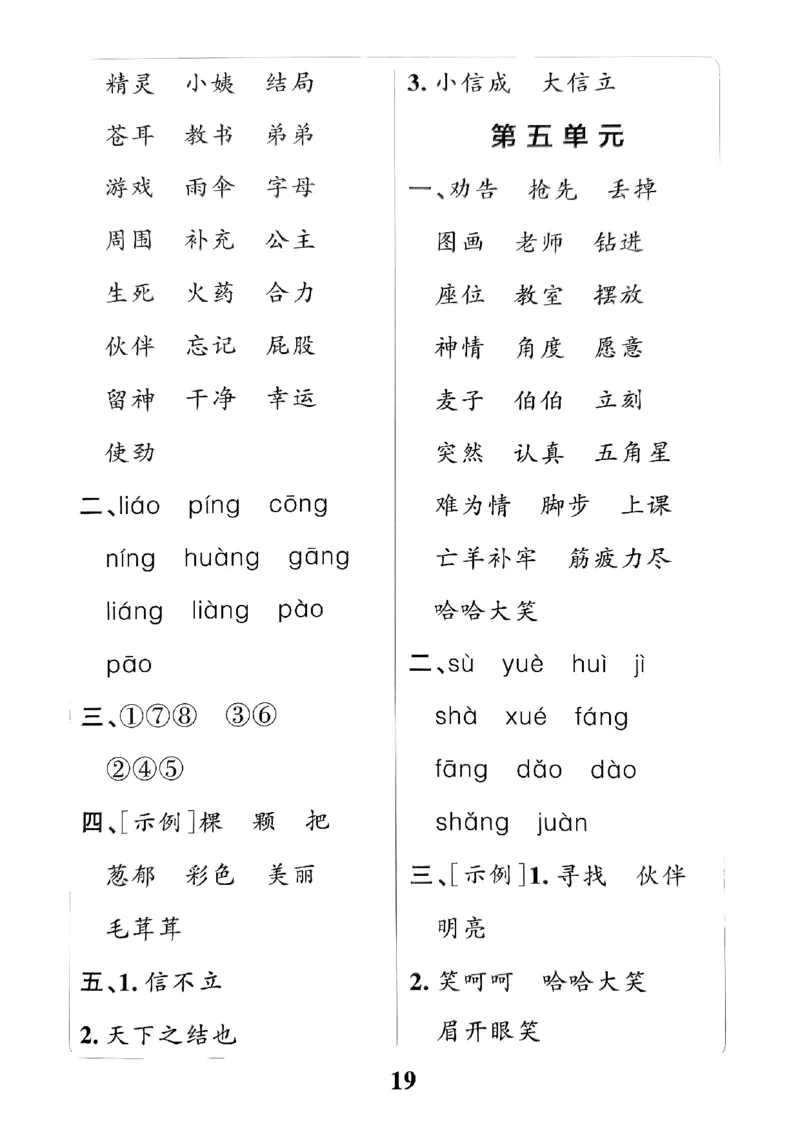 精灵 小姨 结局
苍耳 教书 弟弟
游戏 雨伞 字母
周围 补充 公主
生死 火药 合力
伙伴 忘记 屁股
留神 干净 幸运
使劲
二、liáo píng cōng
níng huàng gāng
liáng liàng pào
pāo
三、①⑦⑧ ③⑥
②④⑤
四、[示例]棵 颗 把
葱郁 彩色 美丽
毛茸茸
五、1.信不立
2.天下之结也
3.小信成 大信立
第五单元
一、劝告 抢先 丢掉
图画 老师 钻进
座位 教室 摆放
神情 角度 愿意
麦子 伯伯 立刻
突然 认真 五角星
难为情 脚步 上课
亡羊补牢 筋疲力尽
哈哈大笑
二、sù yuè huì jì
shà xué fáng
fāng dǎo dào
shǎng juàn
三、[示例]1.寻找 伙伴
明亮
2.笑呵呵 哈哈大笑
眉开眼笑
19